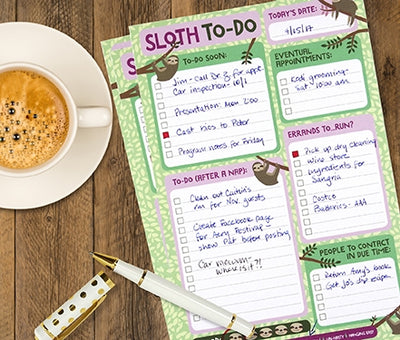 SLOTH TO-DO
TODAY'S DATE:
9/25/17
TO-DO SOON:
Jim - Call Dr. Z for appt
Car inspection: 10/1
Presentation: Mon 2:00
Cast bios to Peter
Program notes for Friday
EVENTUAL APPOINTMENTS:
Kodi grooming-
Sat 10:00 am
ERRANDS TO...RUN?
Pick up dry cleaning
Wine store
Ingredients for
Sangria
Costco
Batteries: AAA
TO-DO (AFTER A NAP):
Clean out Caitlin's
rm for Nov. guests
Create Facebook page
for Arny Festival -
show Pat before posting
Car vacuum-
where is it?!
PEOPLE TO CONTACT
IN DUE TIME:
Return Amy's book
Get Jo's dip recipe